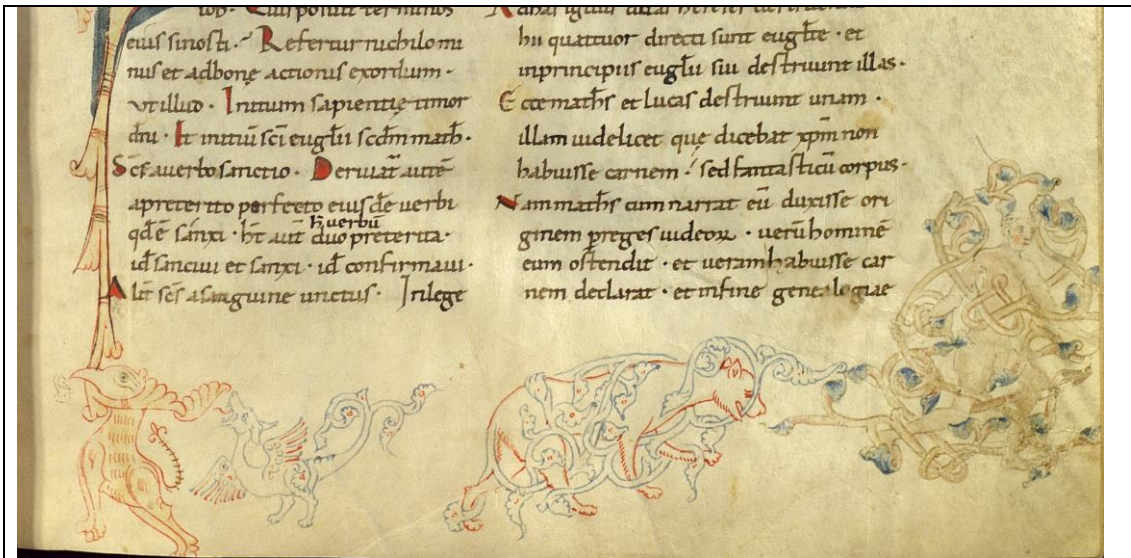 iob. Quis posuit terminos
eius si nosti. Refertur nichilomi
nus et ad bonę actionis exordium.
vt illud. Initium sapientię timor
dn̄i. Et initiū sc̄i euglīi scdm̄ math̄.
Sc̄s a uerbo sanctio. Deriuat̄ autē
apreterito perfecto eius dē uerbi
qđ ē sanxi. h̄t aut̄ h̄ uerbū duo preterita.
id sanciui et sanxi. id confirmaui.
Alit̄ sc̄s a sanguine unctus. In lege
hii quattuor directi sunt euglīste. et
inprincipiis euglīi sui destruunt illas.
Ecce math̄s et lucas destruunt unam.
illam uidelicet quę dicebat xp̄m non
habuisse carnem. sed fantasticū corpus.
Nam math̄s cum narrat eū duxisse ori
ginem p̄ reges iudeoꝝ. uerū hominē
eum ostendit. et ueram habuisse car
nem declarat. et infine genealogiae